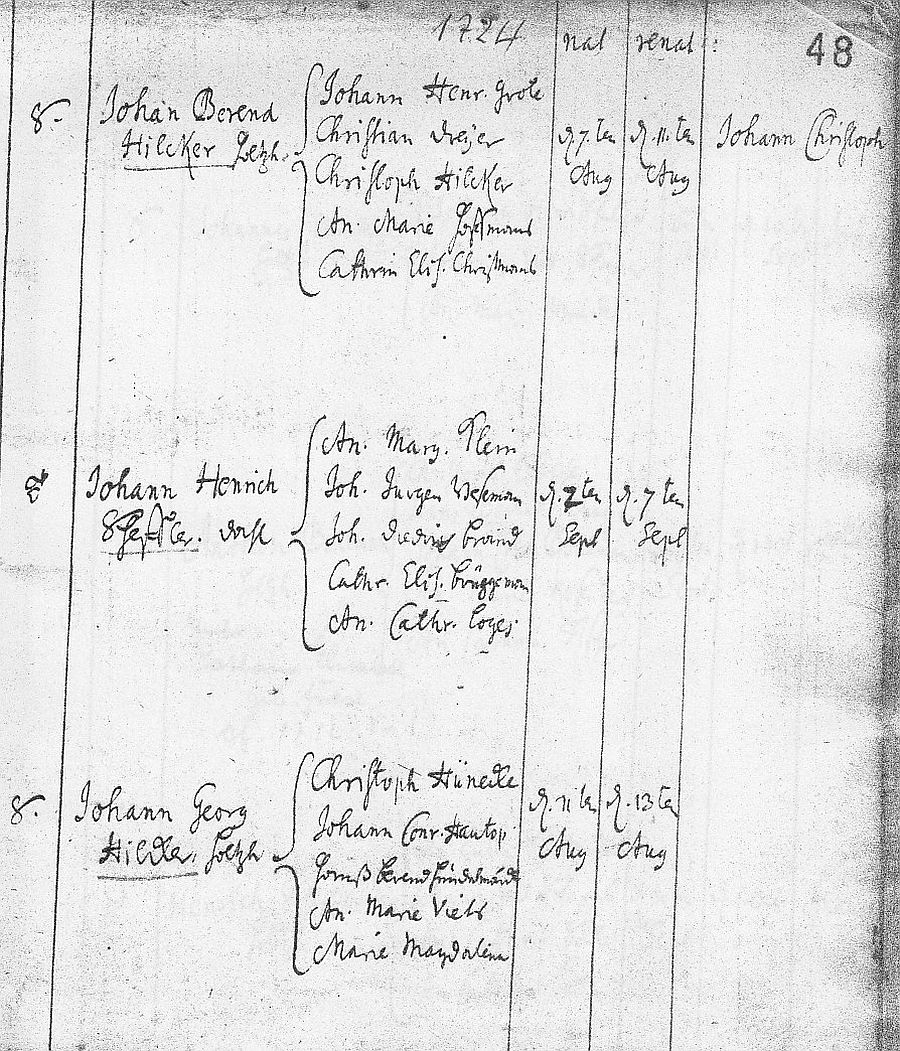 1724
nat renat:
48
8.
Johan Berend
Hilcker Holzh.
Johann Henr. Grote
Christian Dreyer
Christoph Hilcker
An. Marie Hoffmans
Cathrin Elis. Christmans
d. 7. ten
Aug
d. 11. ten
Aug
Johann Christoph
Johann Henrich
An. Marg. Klein
Joh. Jurgen Weseman
Joh. Brand
Cathr. Elis. Brüggeman
An. Cathr. Loges
d. 2 ten
Sept
d. 7 ten
Sept
8.
Johann Georg
Hilcker Holtzh
Christoph Hünecke
Johann Conr. Hautop
Berend
An. Marie Viets
Marie Magdalena
d. 11 ten
Aug
d. 13 ten
Aug